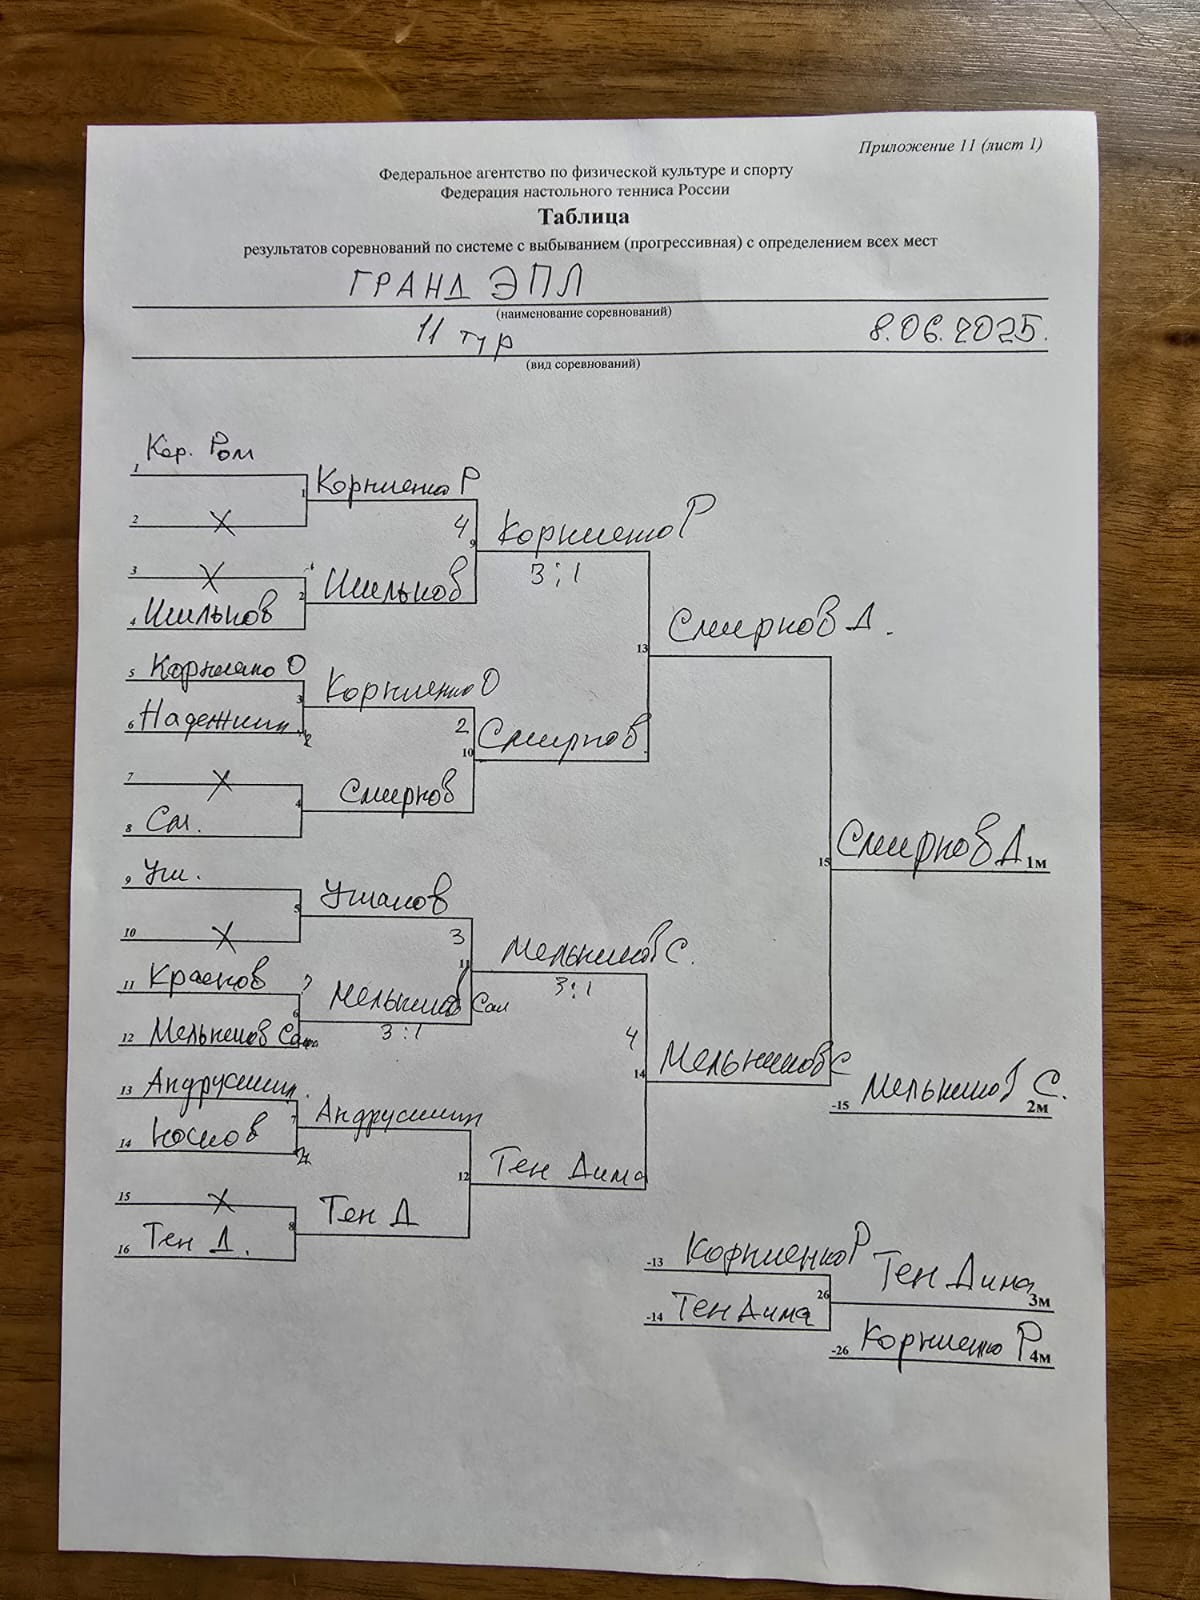 Приложение 11 (лист 1)
Федеральное агентство по физической культуре и спорту
Федерация настольного тенниса России
Таблица
результатов соревнований по системе с выбыванием (прогрессивная) с определением всех мест
ГРАНД ЭПЛ
(наименование соревнований)
11 тур 8.06.2025.
(вид соревнований)
1 Кор. Ром
1 Корниенко Р
2 X
4
9 Корниенко Р
3:1
3 X
2 Ишильков
4 Ишильков
13 Смирнов Д.
5 Корниенко О
3 Корниенко О
6 Надежкин
2
10 Смирнов
7 X
4 Смирнов
8 См.
15 Смирнов Д 1м
9 Уш.
5 Ушаков
10 X
3
11 Мельников С.
3:1
11 Краснов
6 Мельников Сан
3:1
12 Мельников Саша
4
14 Мельников С
-15 Мельников С. 2м
13 Андрусишин
7 Андрусишин
14 Носков
12 Тен Дима
15 X
8 Тен Д
16 Тен Д.
-13 Корниенко Р
26 Тен Дима 3м
-14 Тен Дима
-26 Корниенко Р 4м